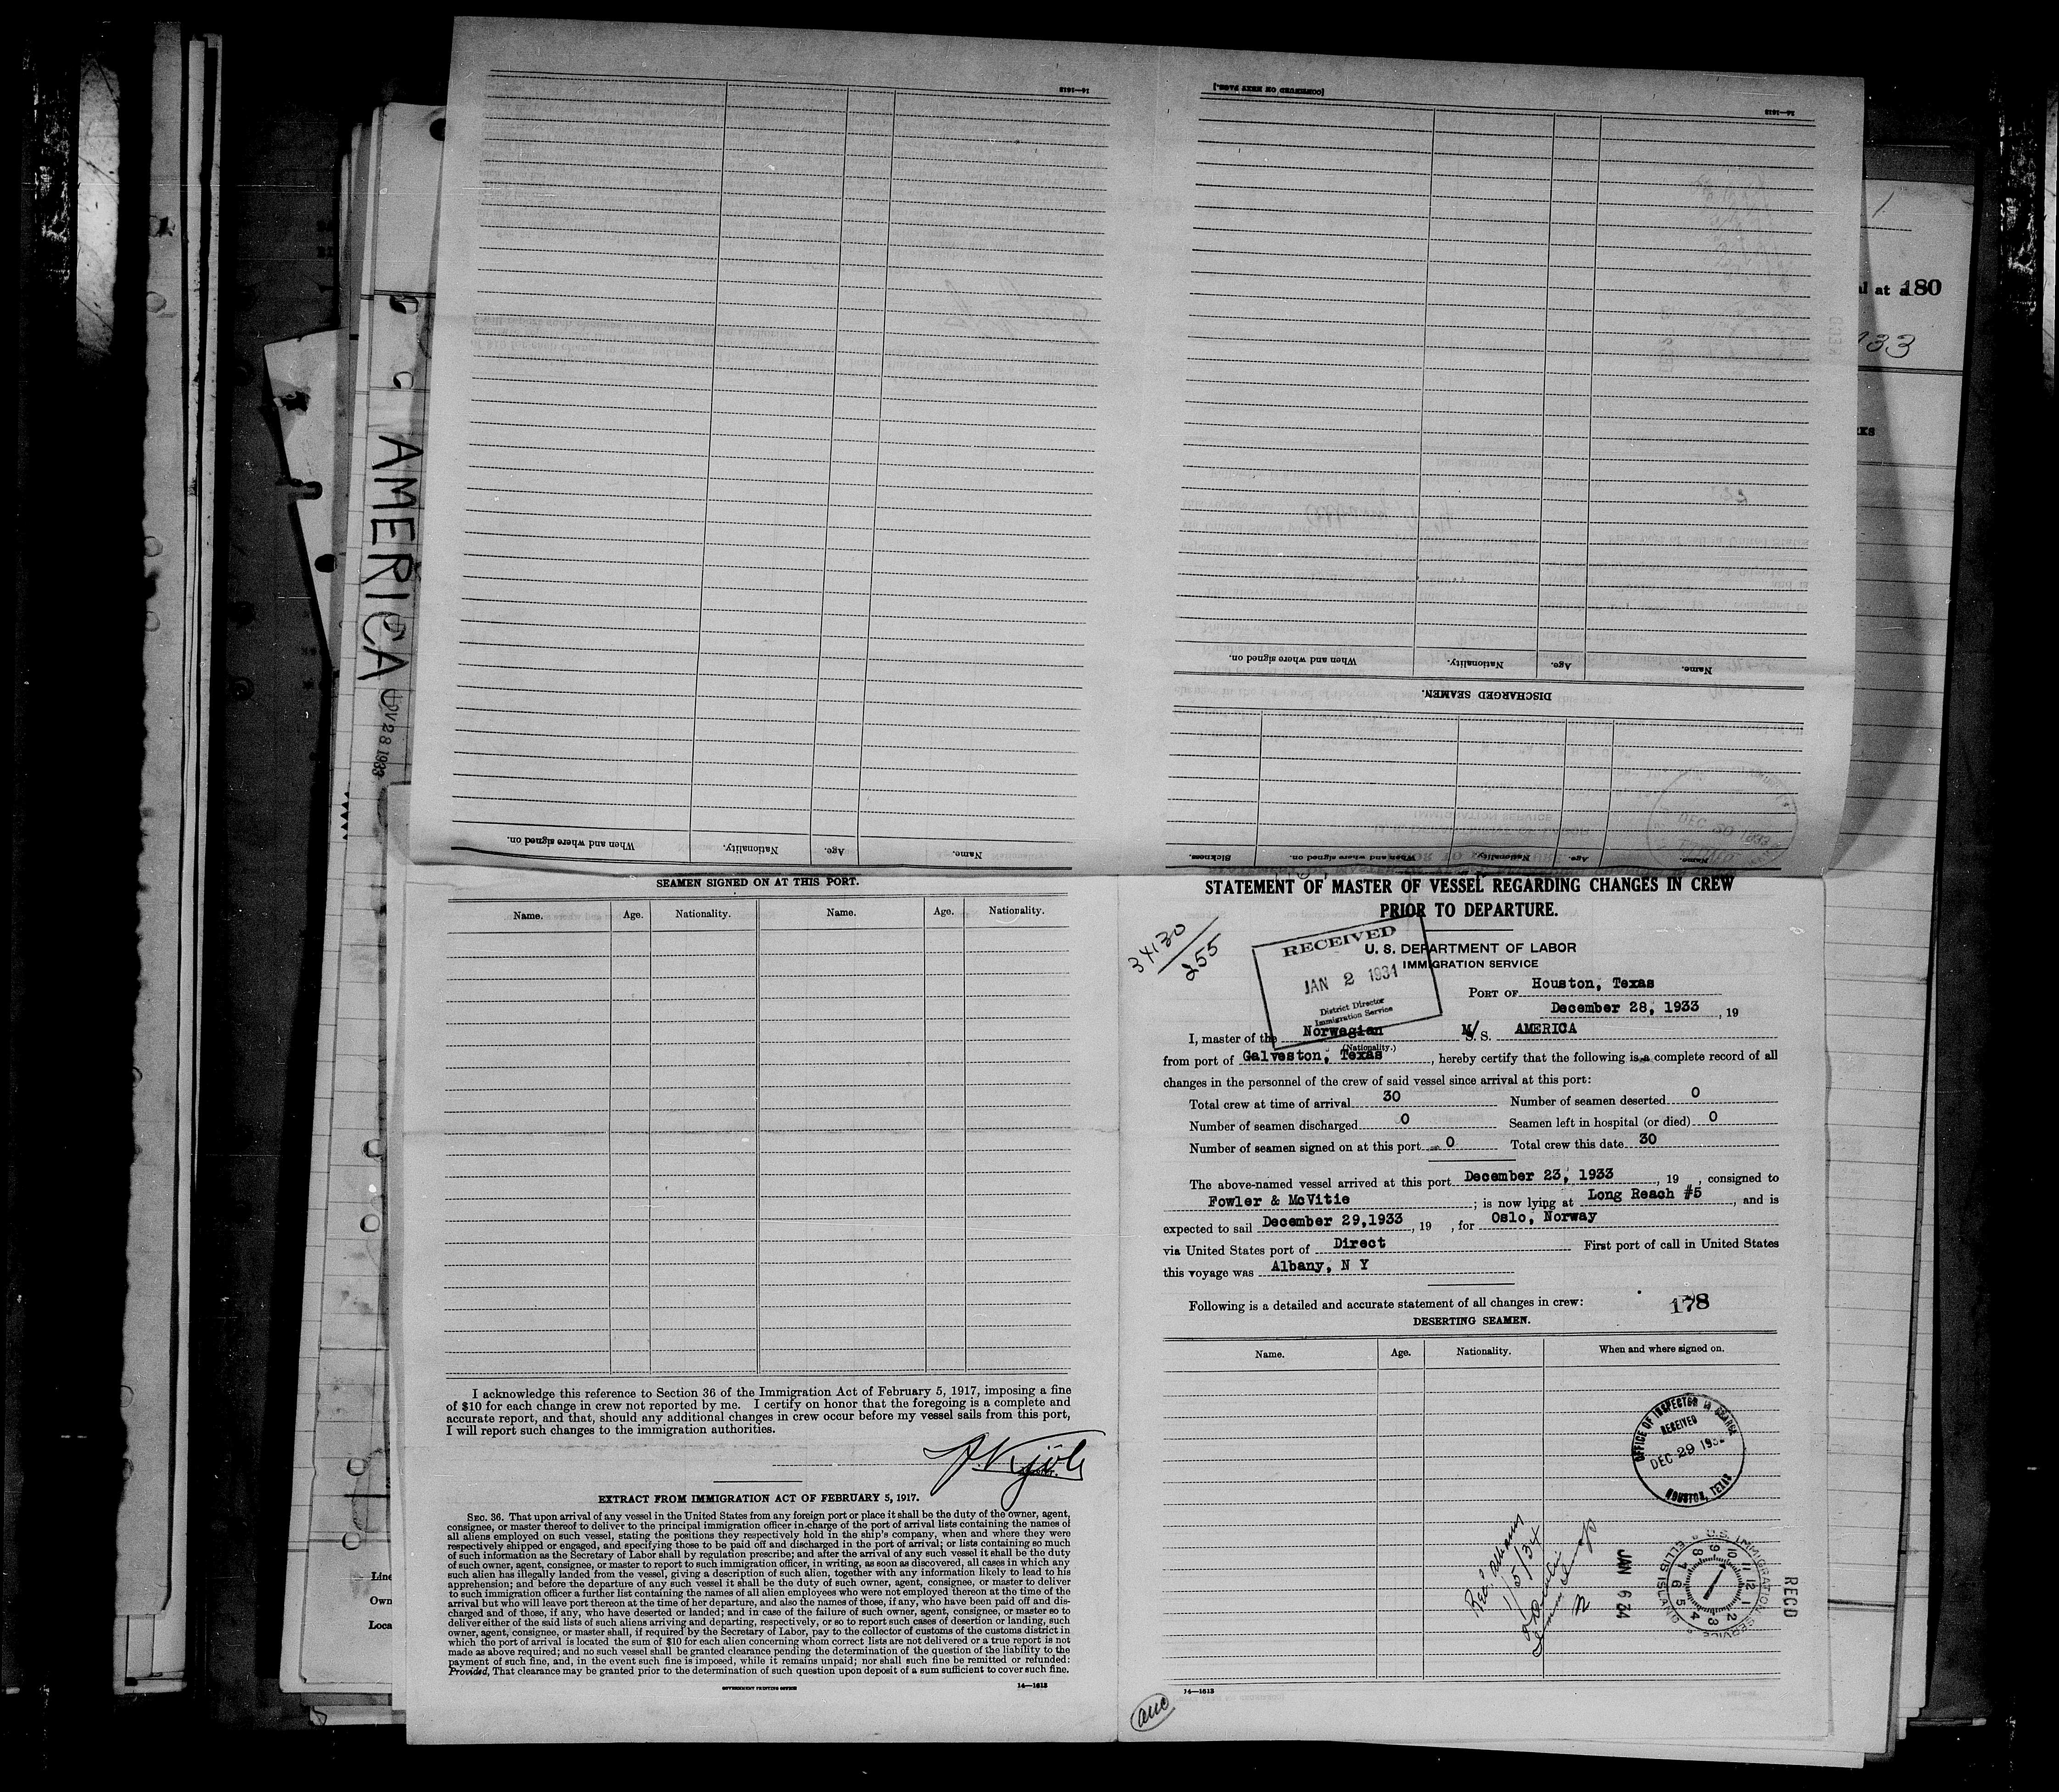 14—1613
[CONTINUED ON NEXT PAGE.]
14—1613
1
al at a 180
133
KS
AMERICA
NOV 28 1933
Name.
Age.
Nationality.
When and where signed on.
DISCHARGED SEAMEN.
Name.
Age.
Nationality.
When and where signed on.
Name.
Age.
Nationality.
When and where signed on.
Sickness.
DEC 30 1933
SEAMEN SIGNED ON AT THIS PORT.
Name. Age. Nationality. Name. Age. Nationality.
I acknowledge this reference to Section 36 of the Immigration Act of February 5, 1917, imposing a fine
of $10 for each change in crew not reported by me. I certify on honor that the foregoing is a complete and
accurate report, and that, should any additional changes in crew occur before my vessel sails from this port,
I will report such changes to the immigration authorities.
Master.
EXTRACT FROM IMMIGRATION ACT OF FEBRUARY 5, 1917.
SEC. 36. That upon arrival of any vessel in the United States from any foreign port or place it shall be the duty of the owner, agent,
consignee, or master thereof to deliver to the principal immigration officer in charge of the port of arrival lists containing the names of
all aliens employed on such vessel, stating the positions they respectively hold in the ship's company, when and where they were
respectively shipped or engaged, and specifying those to be paid off and discharged in the port of arrival; or lists containing so much
of such information as the Secretary of Labor shall by regulation prescribe; and after the arrival of any such vessel it shall be the duty
of such owner, agent, consignee, or master to report to such immigration officer, in writing, as soon as discovered, all cases in which any
such alien has illegally landed from the vessel, giving a description of such alien, together with any information likely to lead to his
apprehension; and before the departure of any such vessel it shall be the duty of such owner, agent, consignee, or master to deliver
to such immigration officer a further list containing the names of all alien employees who were not employed thereon at the time of the
arrival but who will leave port thereon at the time of her departure, and also the names of those, if any, who have been paid off and dis-
charged and of those, if any, who have deserted or landed; and in case of the failure of such owner, agent, consignee, or master so to
deliver either of the said lists of such aliens arriving and departing, respectively, or so to report such cases of desertion or landing, such
owner, agent, consignee, or master shall, if required by the Secretary of Labor, pay to the collector of customs of the customs district in
which the port of arrival is located the sum of $10 for each alien concerning whom correct lists are not delivered or a true report is not
made as above required; and no such vessel shall be granted clearance pending the determination of the question of the liability to the
payment of such fine, and, in the event such fine is imposed, while it remains unpaid; nor shall such fine be remitted or refunded:
Provided, That clearance may be granted prior to the determination of such question upon deposit of a sum sufficient to cover such fine.
GOVERNMENT PRINTING OFFICE 14—1613
Line
Own
Loca
STATEMENT OF MASTER OF VESSEL REGARDING CHANGES IN CREW
PRIOR TO DEPARTURE.
34130
255
RECEIVED
JAN 2 1934
District Director
Immigration Service
U. S. DEPARTMENT OF LABOR
IMMIGRATION SERVICE
PORT OF Houston, Texas
December 28, 1933, 19
I, master of the Norwegian M/S. S. AMERICA
(Nationality.)
from port of Galveston, Texas, hereby certify that the following is a complete record of all
changes in the personnel of the crew of said vessel since arrival at this port:
Total crew at time of arrival 30 Number of seamen deserted 0
Number of seamen discharged 0 Seamen left in hospital (or died) 0
Number of seamen signed on at this port 0 Total crew this date 30
The above-named vessel arrived at this port December 23, 1933, 19 , consigned to
Fowler & McVitie; is now lying at Long Reach #5, and is
expected to sail December 29,1933, 19 , for Oslo, Norway
via United States port of Direct First port of call in United States
this voyage was Albany, N Y
Following is a detailed and accurate statement of all changes in crew: 178
DESERTING SEAMEN.
Name. Age. Nationality. When and where signed on.
OFFICE OF INSPECTOR IN CHARGE
RECEIVED
DEC 29 193
HOUSTON, TEXAS
1/5/34
JAN 6 34
U.S. IMMIGRATION SERVICE
ELLIS ISLAND
12 1 2 3 4 5 6 7 8 9 10 11
REC'D
14—1613